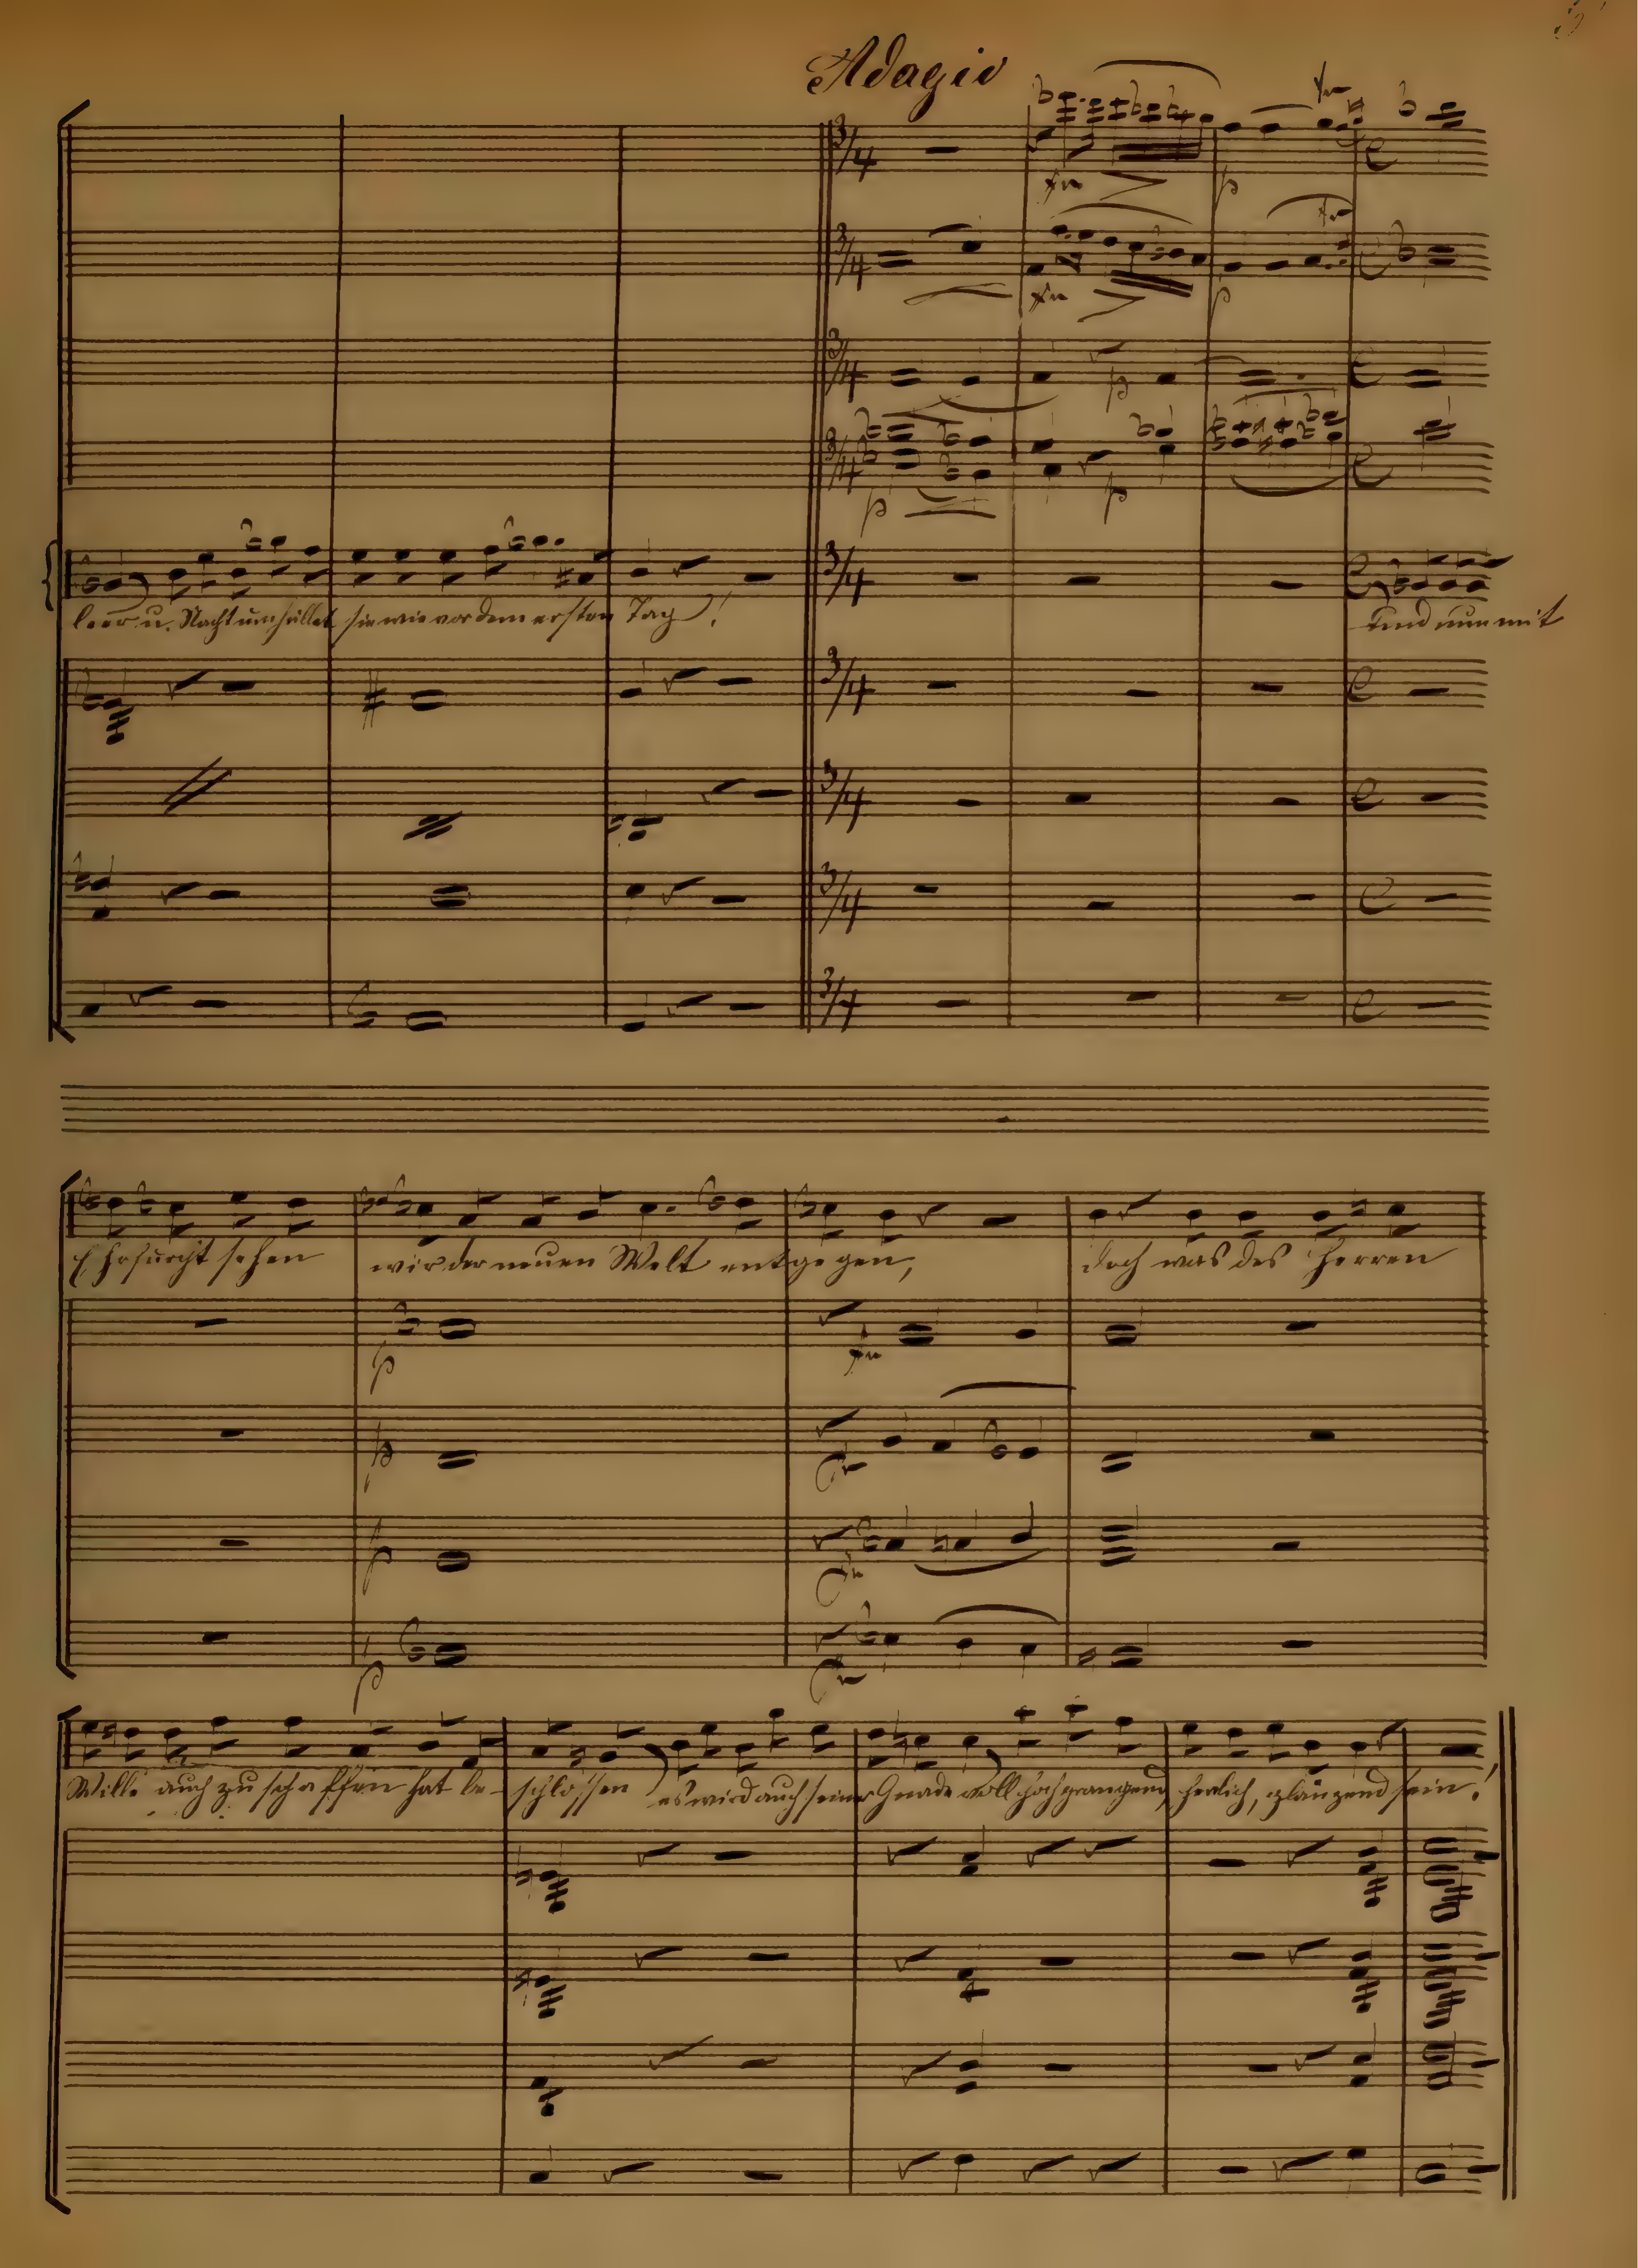 Adagio
leer u. Nacht umhüllet sie wie vor dem ersten Tag!
und nun mit
Ehrfurcht sehen wir der neuen Welt entgegen, doch was des Herren
Wille auch zu schaffen hat beschlossen es wird auch seiner Gnade voll hochprangend herrlich, glänzend sein!